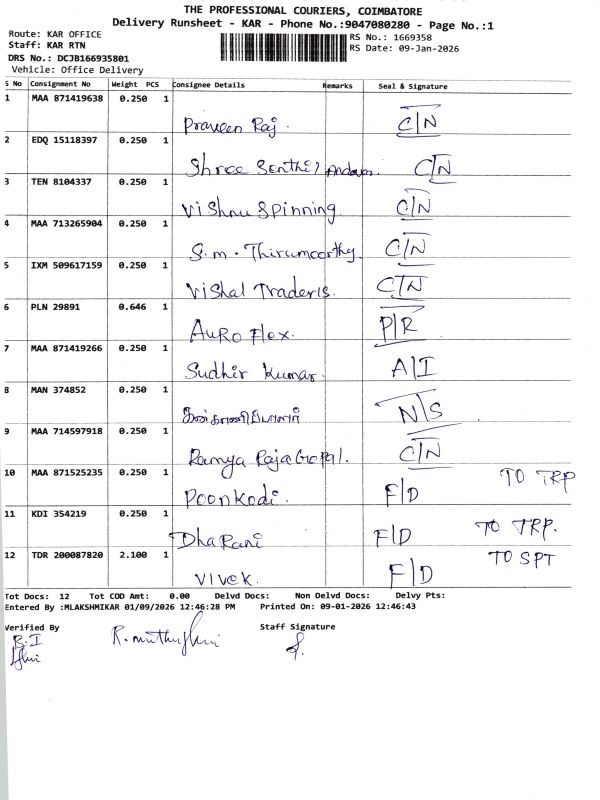 THE PROFESSIONAL COURIERS, COIMBATORE
Delivery Runsheet - KAR - Phone No.:9047080280 - Page No.:1
Route: KAR OFFICE
RS No.: 1669358
Staff: KAR RTN
RS Date: 09-Jan-2026
DRS No.: DCJB166935801
Vehicle: Office Delivery
S No Consignment No Weight PCS Consignee Details Remarks Seal & Signature
1 MAA 871419638 0.250 1 Praveen Raj. C/N
2 EDQ 15118397 0.250 1 Shree Senthil Andavar. C/N
3 TEN 8104337 0.250 1 Vishnu Spinning C/N
4 MAA 713265904 0.250 1 S.m. Thirumoorthy C/N
5 IXM 509617159 0.250 1 Vishal Traders. C/N
6 PLN 29891 0.646 1 Auro Flex. P/R
7 MAA 871419266 0.250 1 Sudhir Kumar. A/I
8 MAN 374852 0.250 1 N/S
9 MAA 714597918 0.250 1 Ramya RajaGopal. C/N
10 MAA 871525235 0.250 1 Poonkodi. F/D TO TRP
11 KDI 354219 0.250 1 DhaRani F/D TO TRP.
12 TDR 200087820 2.100 1 Vivek. F/D TO SPT
Tot Docs: 12 Tot COD Amt: 0.00 Delvd Docs: Non Delvd Docs: Delvy Pts:
Entered By :MLAKSHMIKAR 01/09/2026 12:46:28 PM Printed On: 09-01-2026 12:46:43
Verified By Staff Signature